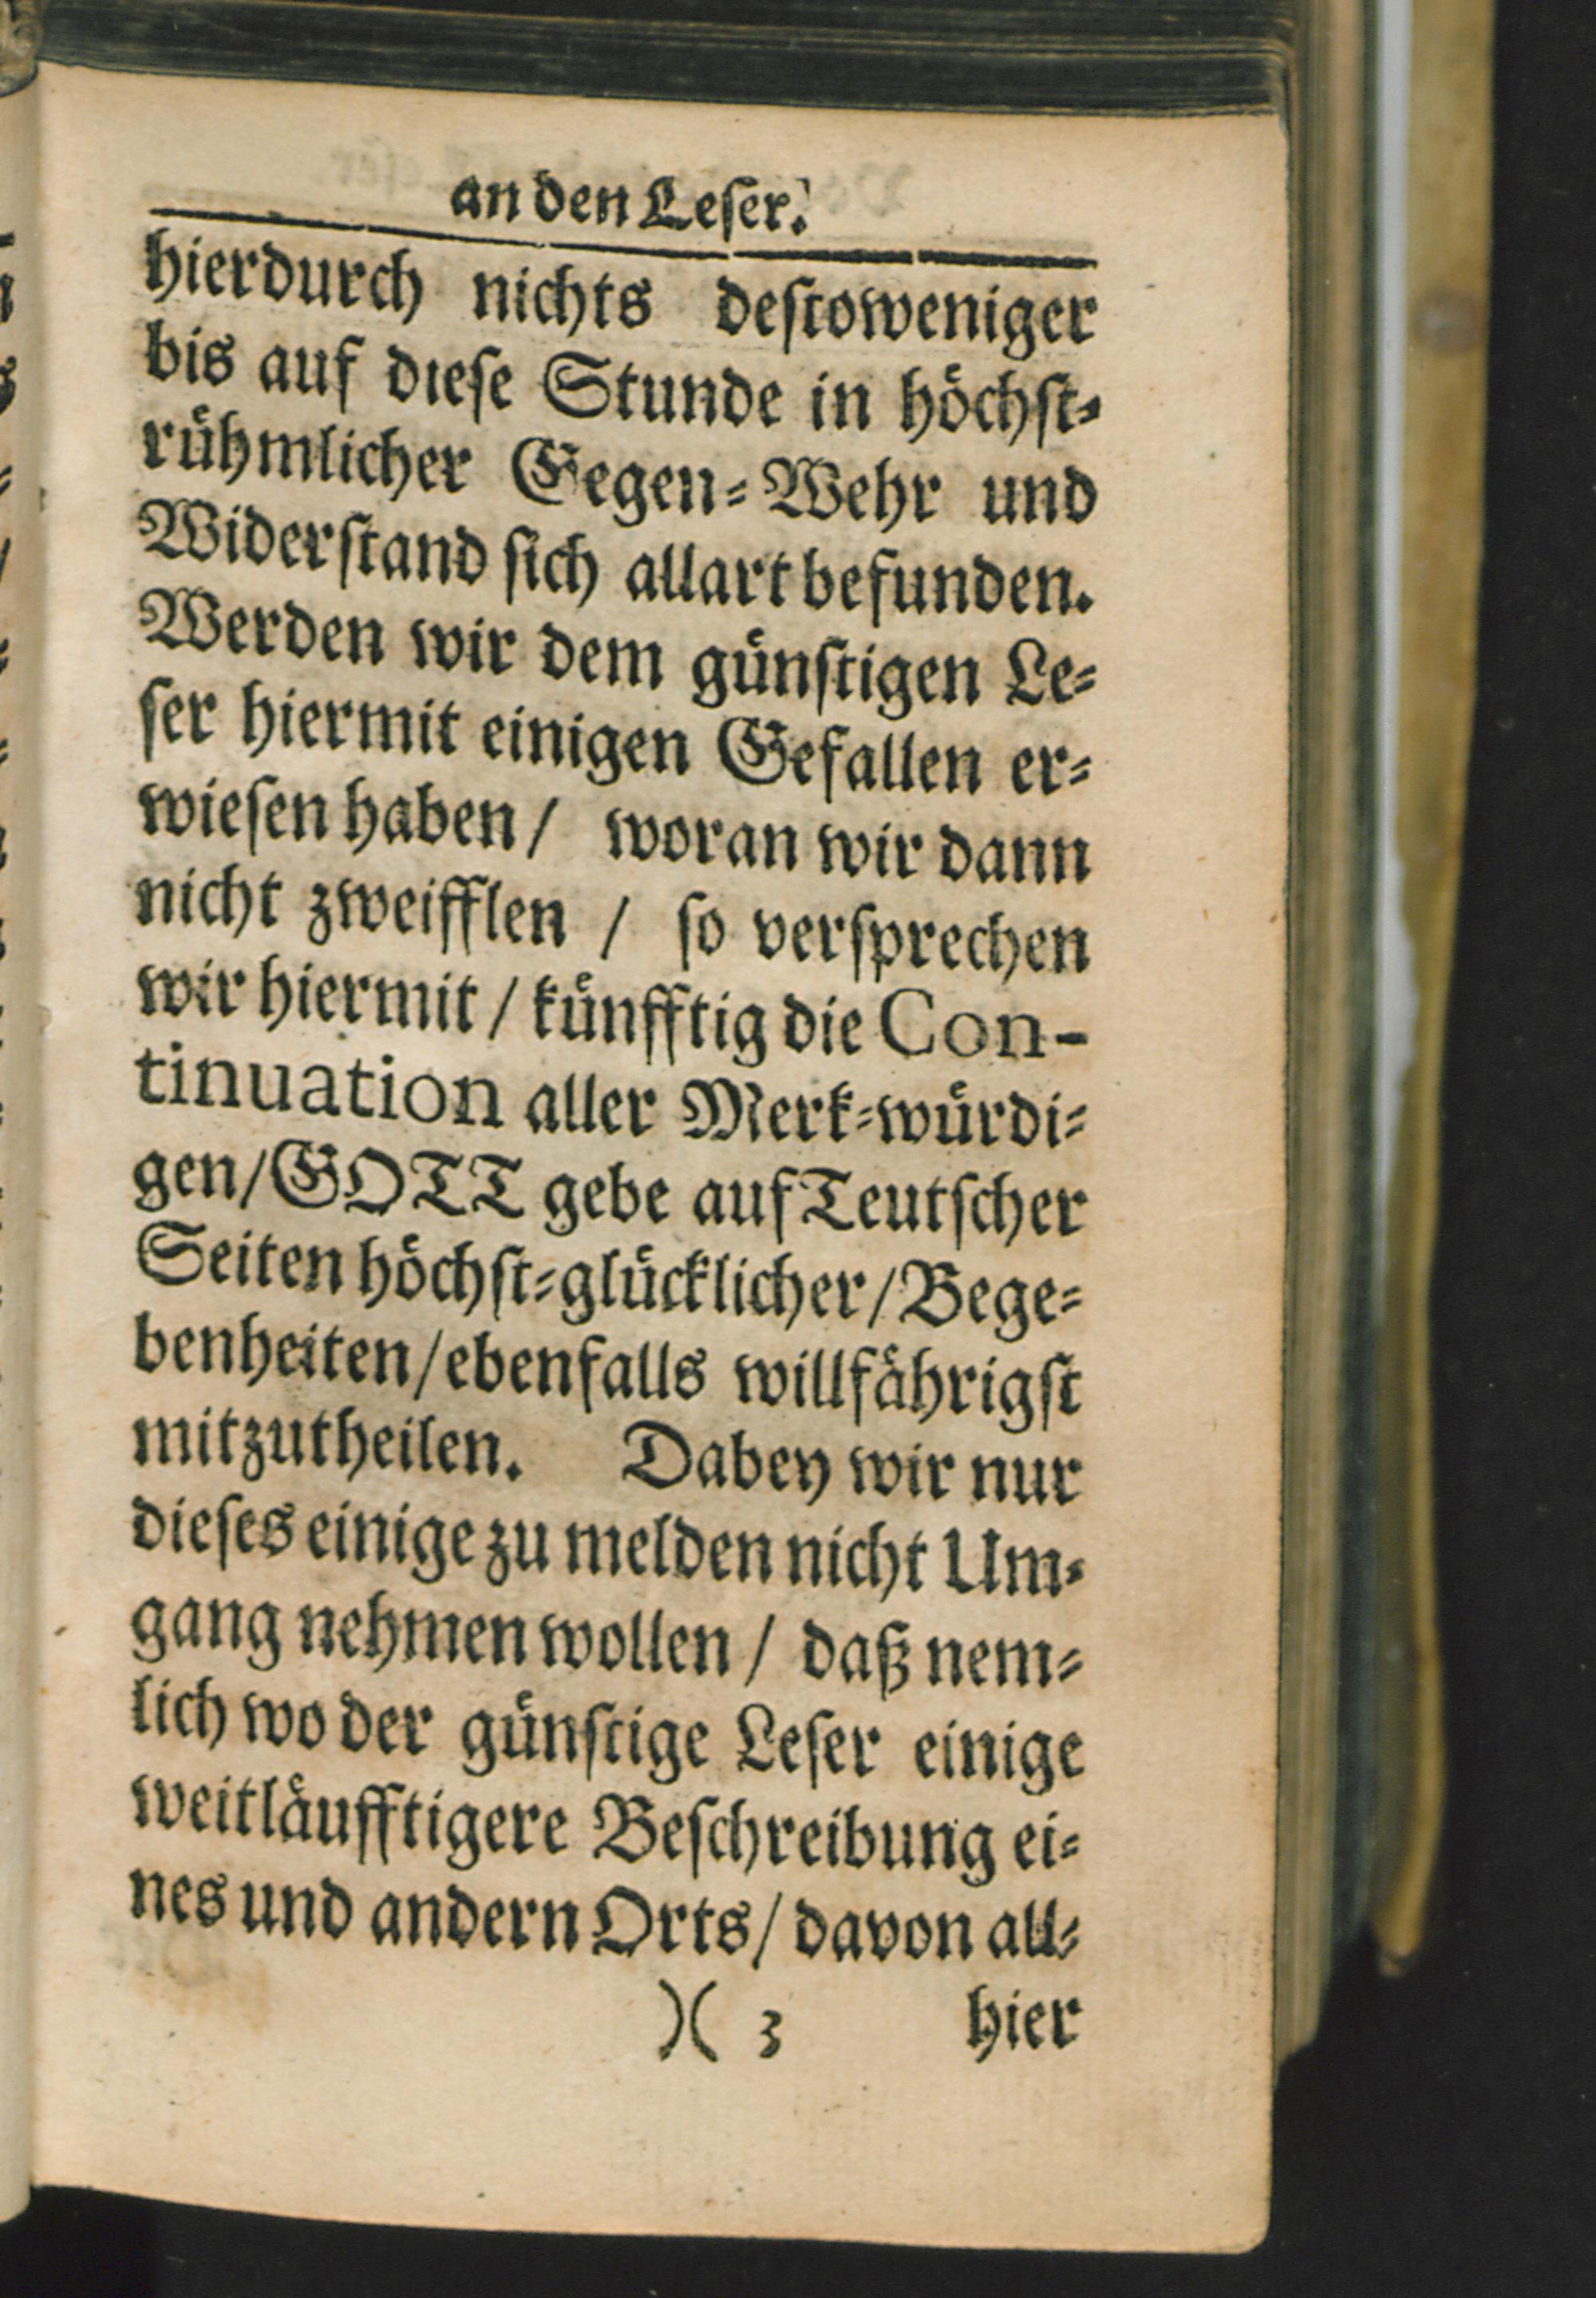 an den Leſer.
hierdurch nichts deſtoweniger
bis auf dieſe Stunde in hoͤchſt⸗
ruͤhmlicher Gegen⸗Wehr und
Widerſtand ſich allart befunden.
Werden wir dem guͤnſtigen Le⸗
ſer hiermit einigen Gefallen er⸗
wieſen haben / woran wir dann
nicht zweifflen / ſo verſprechen
wir hiermit / kuͤnfftig die Con-
tinuation aller Merk⸗wuͤrdi⸗
gen / GOTT gebe auf Teutſcher
Seiten hoͤchſt⸗gluͤcklicher / Bege⸗
benheiten / ebenfalls willfaͤhrigſt
mitzutheilen. Dabey wir nur
dieſes einige zu melden nicht Um⸗
gang nehmen wollen / daß nem⸗
lich wo der guͤnſtige Leſer einige
weitlaͤufftigere Beſchreibung ei⸗
nes und andern Orts / davon all⸗
)( 3 hier